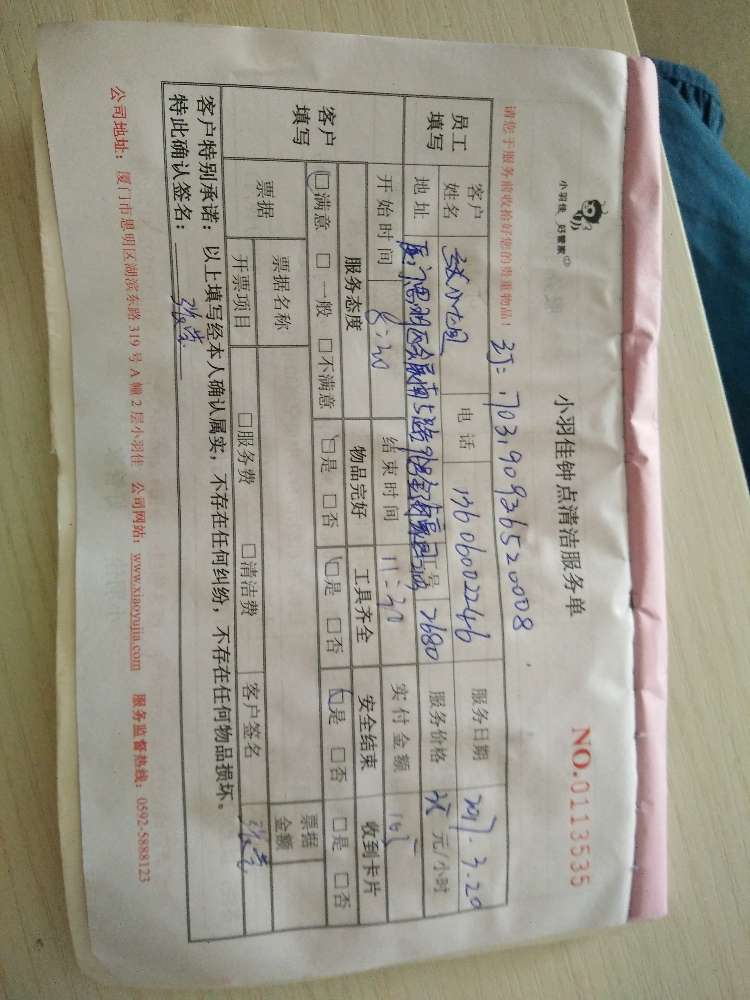 小羽佳 好管家
小羽佳钟点清洁服务单
NO.0113535
请您于服务前收拾好您的贵重物品!
1703190936520008
员工填写 客户姓名 电话 13606002246 服务日期 2017.3.20
地址 厦门思明区会展南5路 工号 2680 服务价格 35 元/小时
开始时间 8:30 结束时间 11:30 实付金额 105
客户填写 服务态度 物品完好 工具齐全 安全结束 收到卡片
□满意 □一般 □不满意 □是 □否 □是 □否 □是 □否 □是 □否
票据 票据名称 票据金额
开票项目 □服务费 □清洁费 客户签名
客户特别承诺:以上填写经本人确认属实,不存在任何纠纷,不存在任何物品损坏。
特此确认签名:
公司地址:厦门市思明区湖滨东路 319 号 A 幢 2 层小羽佳 公司网站:www.xiaoyujia.com 服务监督热线:0592-5888123